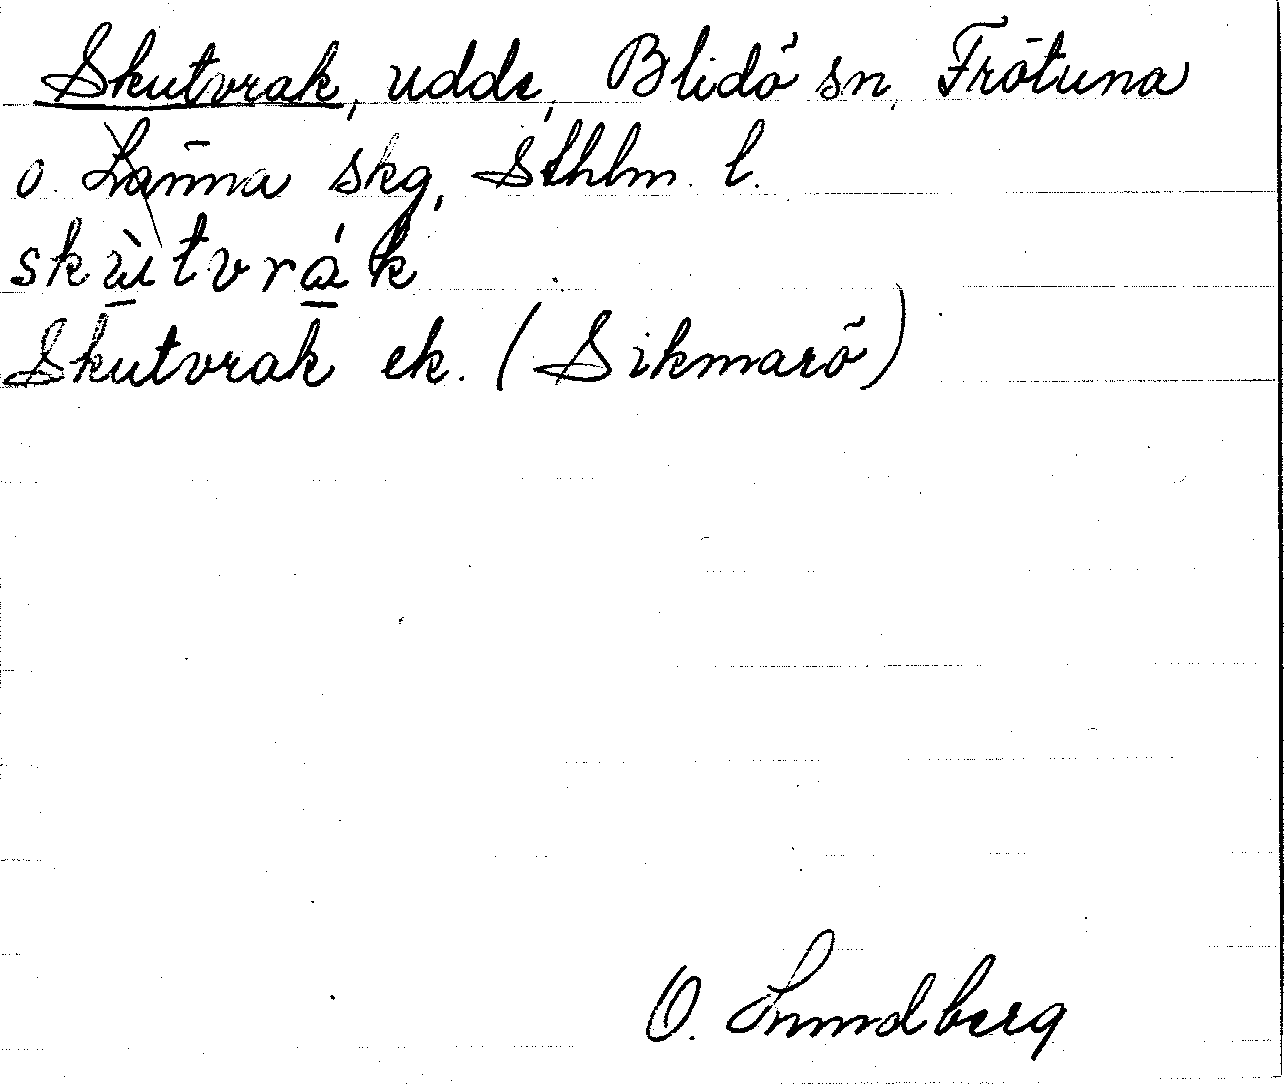 Skutvrak, udde, Blidö sn, Frötuna
o. Länna skg, Sthlm. l.
skὺtvrák
Skutvrak ek. (Sikmarö)
O. Lundberg